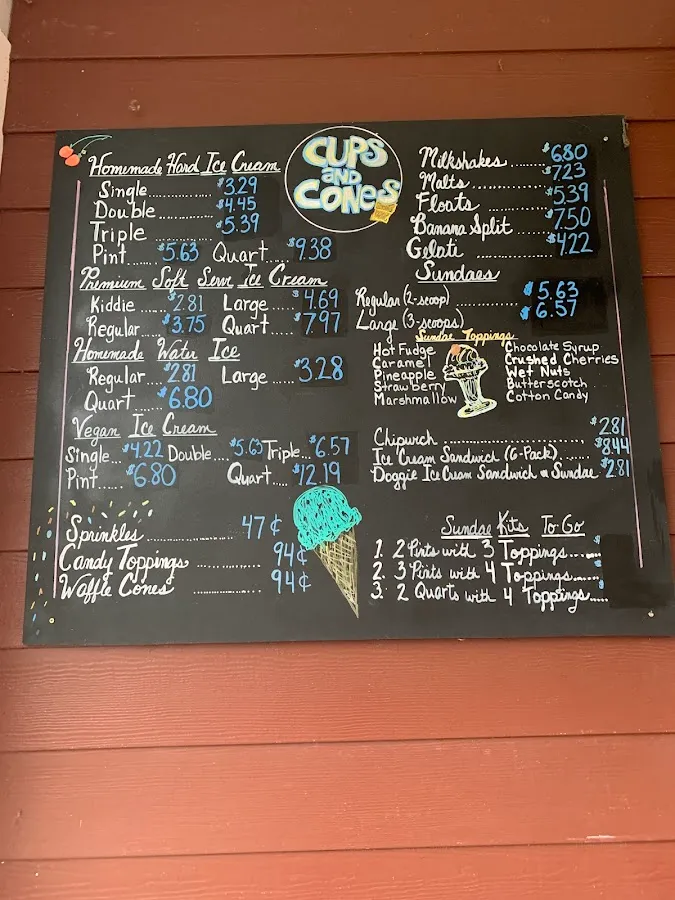 CUPS
AND
CONES
Homemade Hard Ice Cream
Single........... $3.29
Double ............ $4.45
Triple ............ $5.39
Pint....... $5.63 Quart..... $9.38
Premium Soft Serve Ice Cream
Kiddie ..... $2.81 Large ..... $4.69
Regular.... $3.75 Quart..... $7.97
Homemade Water Ice
Regular... $2.81 Large ..... $3.28
Quart..... $6.80
Vegan Ice Cream
Single... $4.22 Double.... $5.63 Triple... $6.57
Pint ... $6.80 Quart.... $12.19
Sprinkles................ 47¢
Candy Toppings ............ 94¢
Waffle Cones ............ 94¢
Milkshakes....... $6.80
Malts ............ $7.23
Floats ........... $5.39
Banana Split ..... $7.50
Gelati ........... $4.22
Sundaes
Regular (2-scoop) ............ $5.63
Large (3-scoops) $6.57
Sundae Toppings
Hot Fudge
Caramel
Pineapple
Strawberry
Marshmallow
Chocolate Syrup
Crushed Cherries
Wet Nuts
Butterscotch
Cotton Candy
Chipwich ...................... $2.81
Ice Cream Sandwich (6-Pack) ...... $8.44
Doggie Ice Cream Sandwich or Sundae $2.81
Sundae Kits To Go
1. 2 Pints with 3 Toppings....... $
2. 3 Pints with 4 Toppings....... $
3. 2 Quarts with 4 Toppings..... $